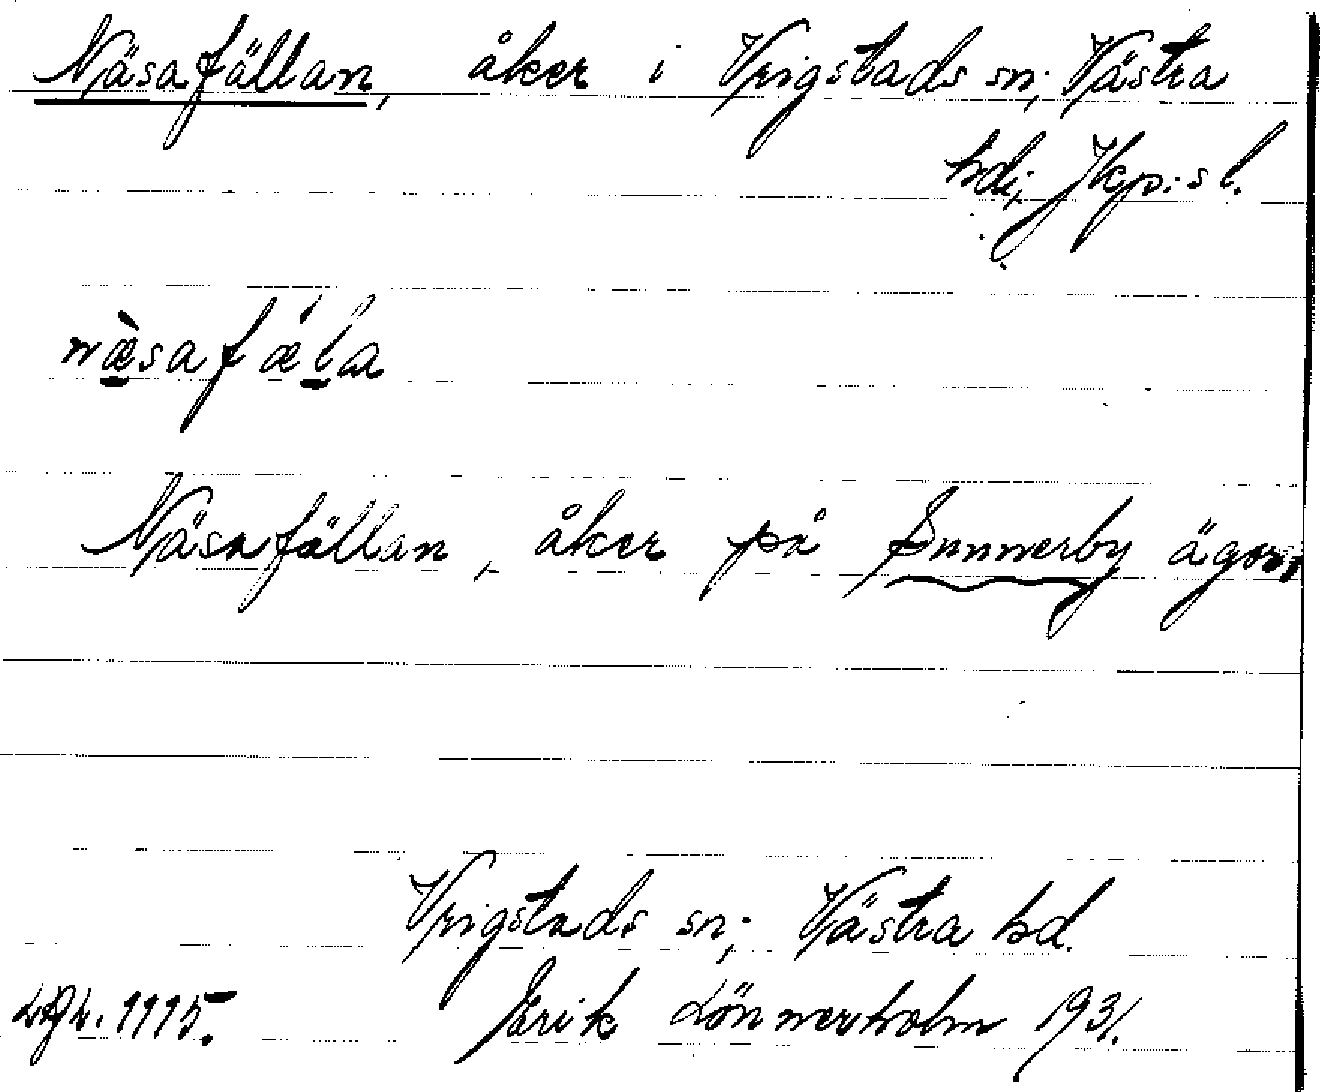 Näsafällan, åker i Vrigstads sn; Västra
hd; Jkp:s l.
næ̀safǽla
Näsafällan, åker på Sunnerby ägor,
Vrigstads sn; Västra hd.
Erik Lönnerholm 1931.